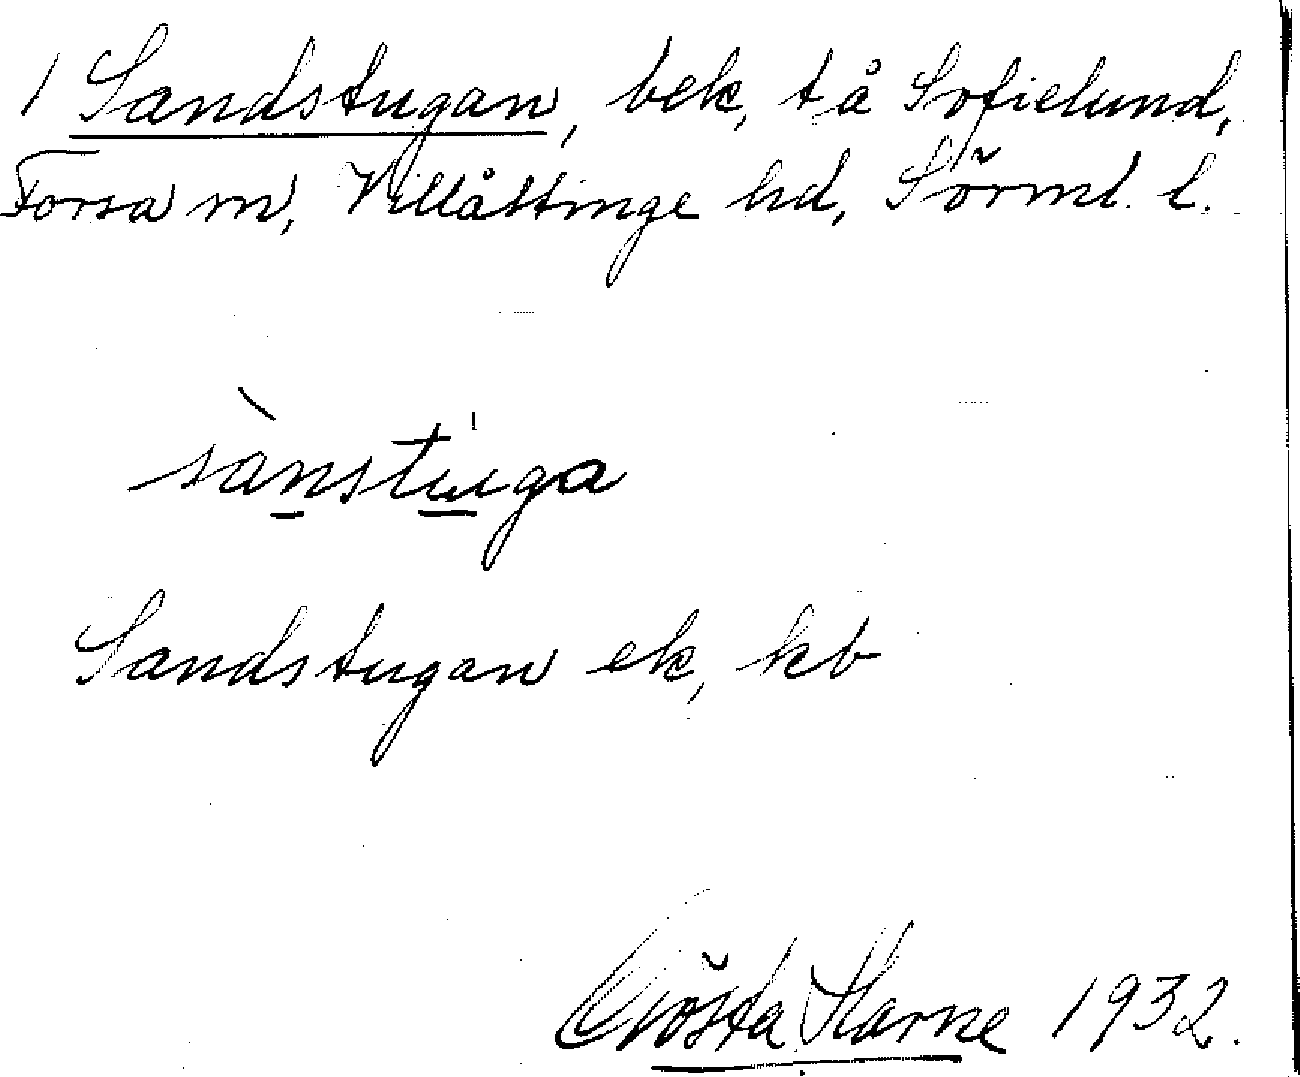 1 Sandstugan, bek, t å Sofielund,
Forsa sn, Villåttinge hd, Sörml. l.
sànstuga
Sandstugan ek, kb
Gösta Harne 1932.